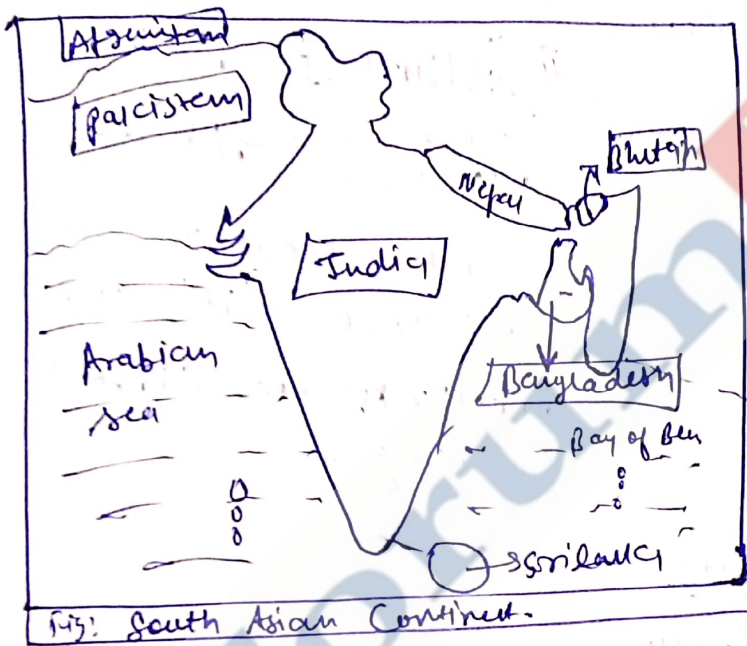 Afganistan
Pakistan
Bhutan
Nepal
India
Arabian
sea
Bangladesh
Bay of Ben
Srilanka
Fig: South Asian Continent.